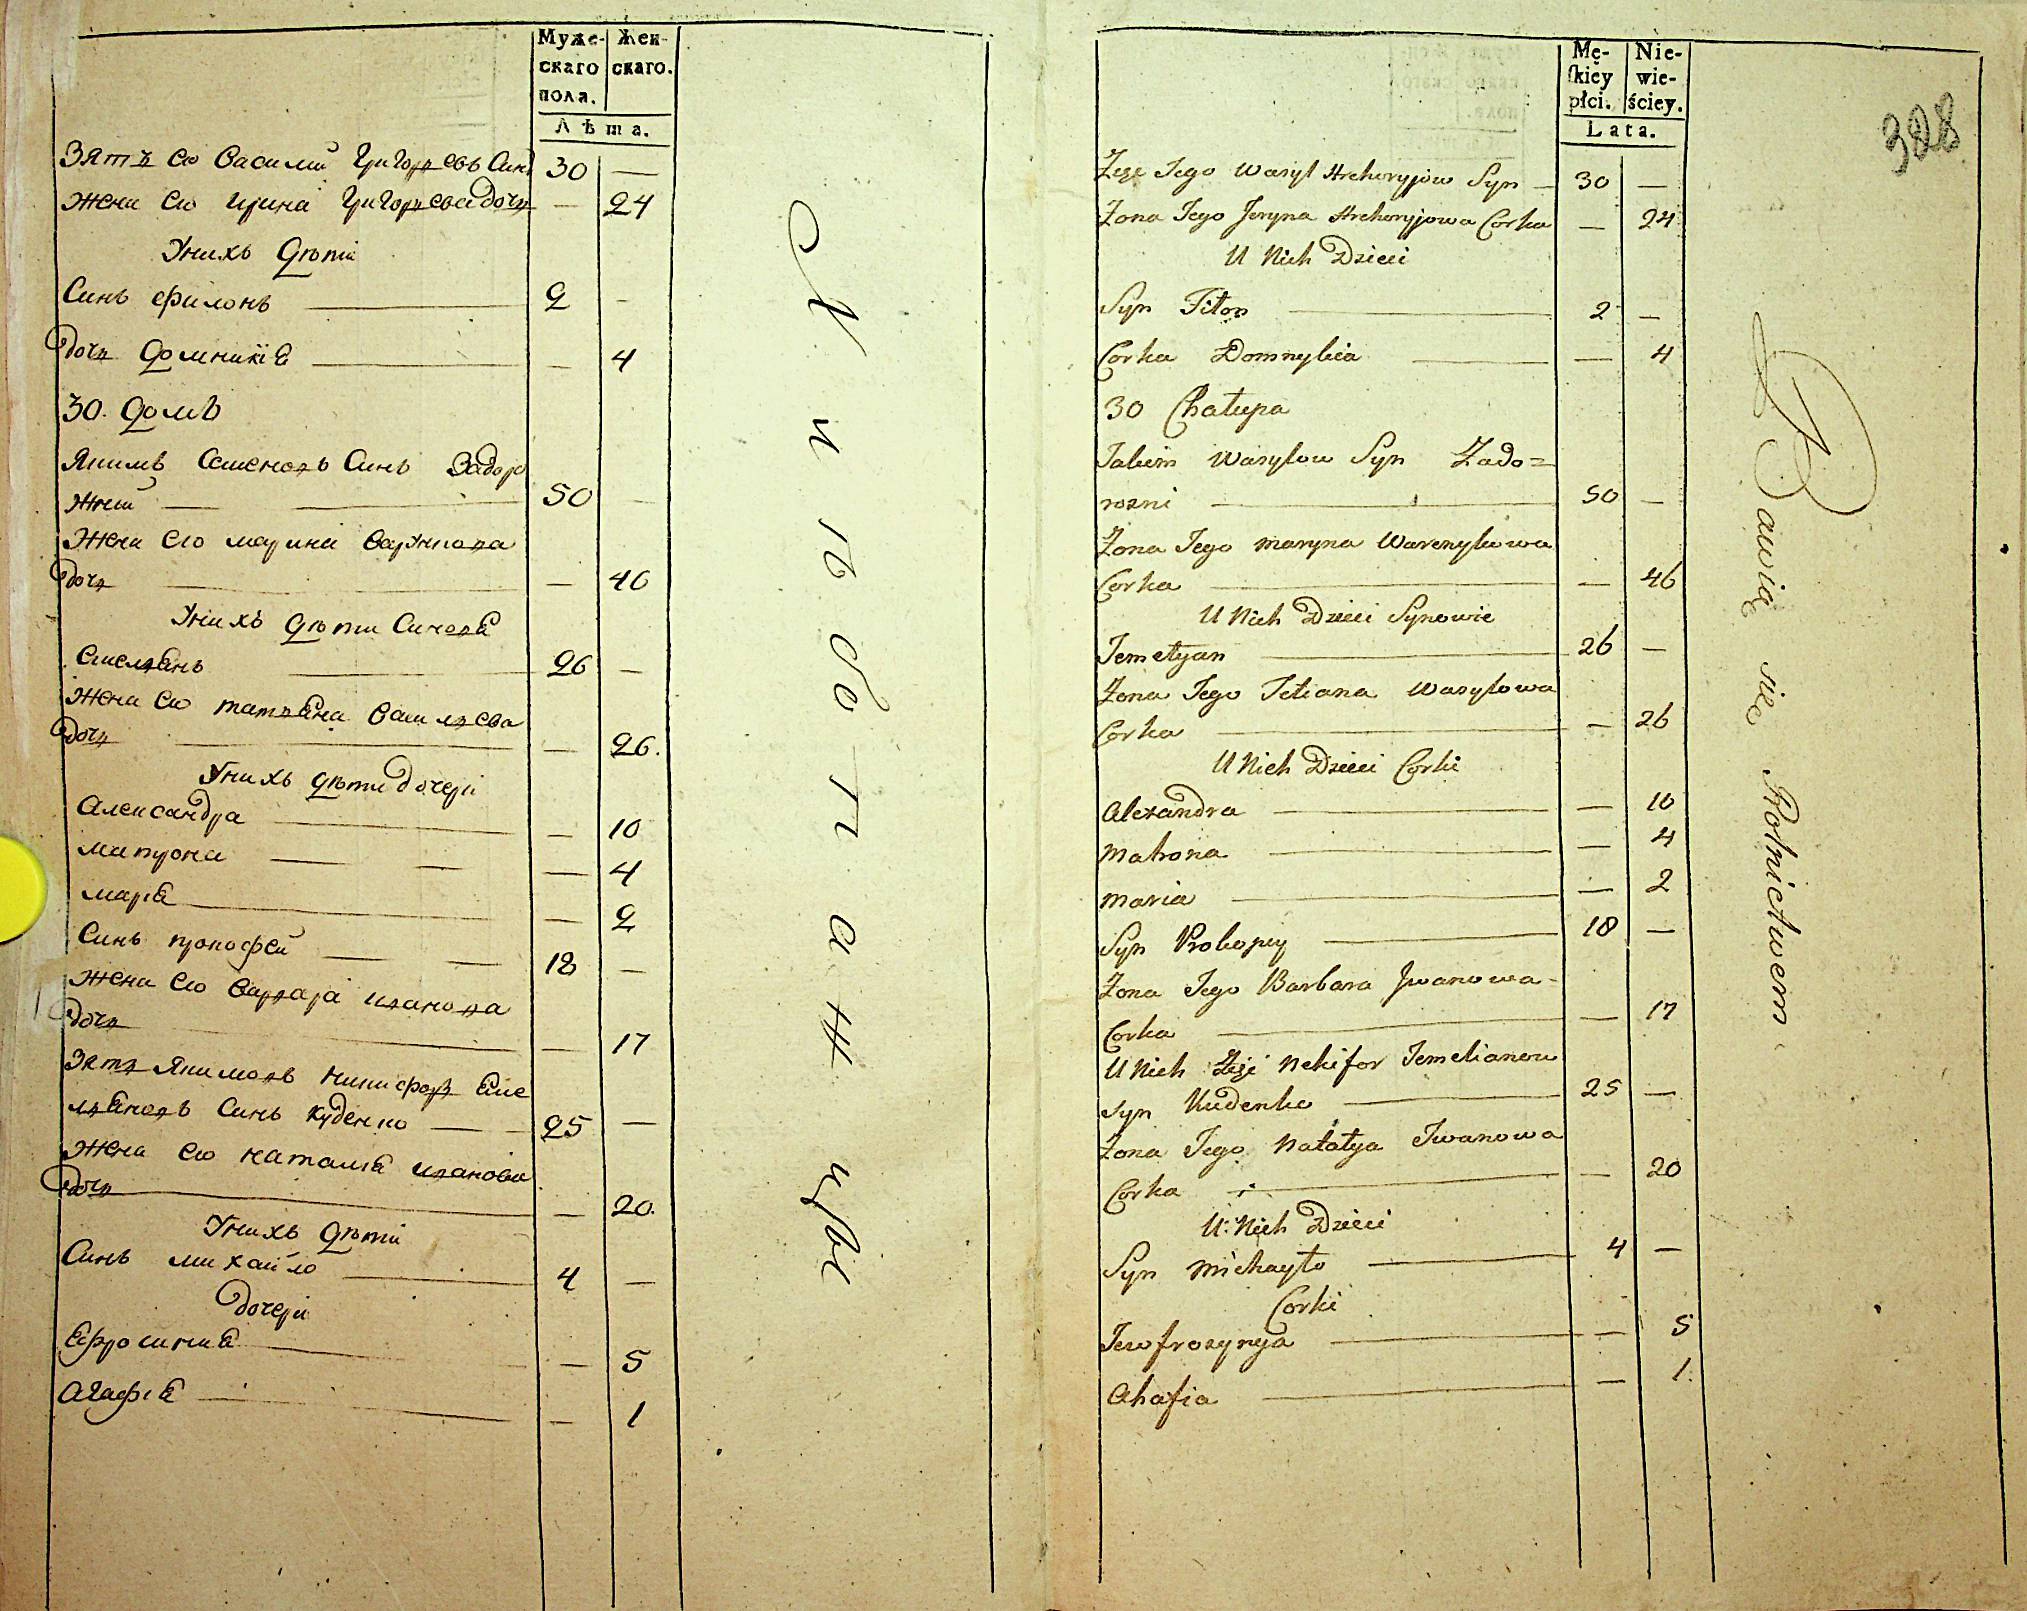 Муже-
скаго
пола.
Жен-
скаго.
Лѣта.
Зять его Василий Григорьевъ Синъ 30 —
жена его ирина Григорьева дочь — 24
Унихъ Дѣти
Синъ филонъ — 2 —
дочь Домникия — — 4
30. Домъ
Якимъ Синъ Задоро
жний — 50 —
Жена его марина
дочь — — 46
Унихъ Дѣти Синовя
Емельянъ — 26 —
Жена его татьяна Васильева
дочь — — 26.
Унихъ дѣти дочери
Александра — — 10
матрона — — 4
мария — — 2
Синъ прокофей — 18 —
жена его варвара иванова
дочь — — 17
Зять Якимовъ Никифоръ Еме
льяновъ Синъ Куденко — 25 —
Жена его наталия иванова
дочь — — 20.
Унихъ Дѣти
Синъ михайло — 4 —
дочери
Ефросиния — — 5
Агафия — — 1
Mę-
skiey
płci.
Nie-
wie-
ściey.
Lata.
328
Zięć Jego Wasyl Hrehoryjow Syn — 30 —
Żona Jego Jryna Hrehoryjowa Corka — 24
U Nich Dzieci
Syn Filon — 2 —
Corka Domnykia — — 4
30 Chałupa
Jakim Wasylow Syn Zado=
rozni — 50 —
Żona Jego Maryna Warenykowa
Corka — — 46
U Nich Dzieci Synowie
Jemelyan — 26 —
Żona Jego Tetiana Wasylowa
Corka — — 26
U Nich Dzieci Corki
Alexandra — — 10
Matrona — — 4
Maria — — 2
Syn Prokopey — 18 —
Żona Jego Barbara Jwanowa
Corka — — 17
U Nich Zięć Nekifor Jemelianow
Syn Kudenko — 25 —
Żona Jego Natalya Iwanowa
Corka — — 20
U Nich Dzieci
Syn Michayło — 4 —
Corki
Jewfrozynya — — 5
Ahafia — — 1.
Bawią się Rolnictwem